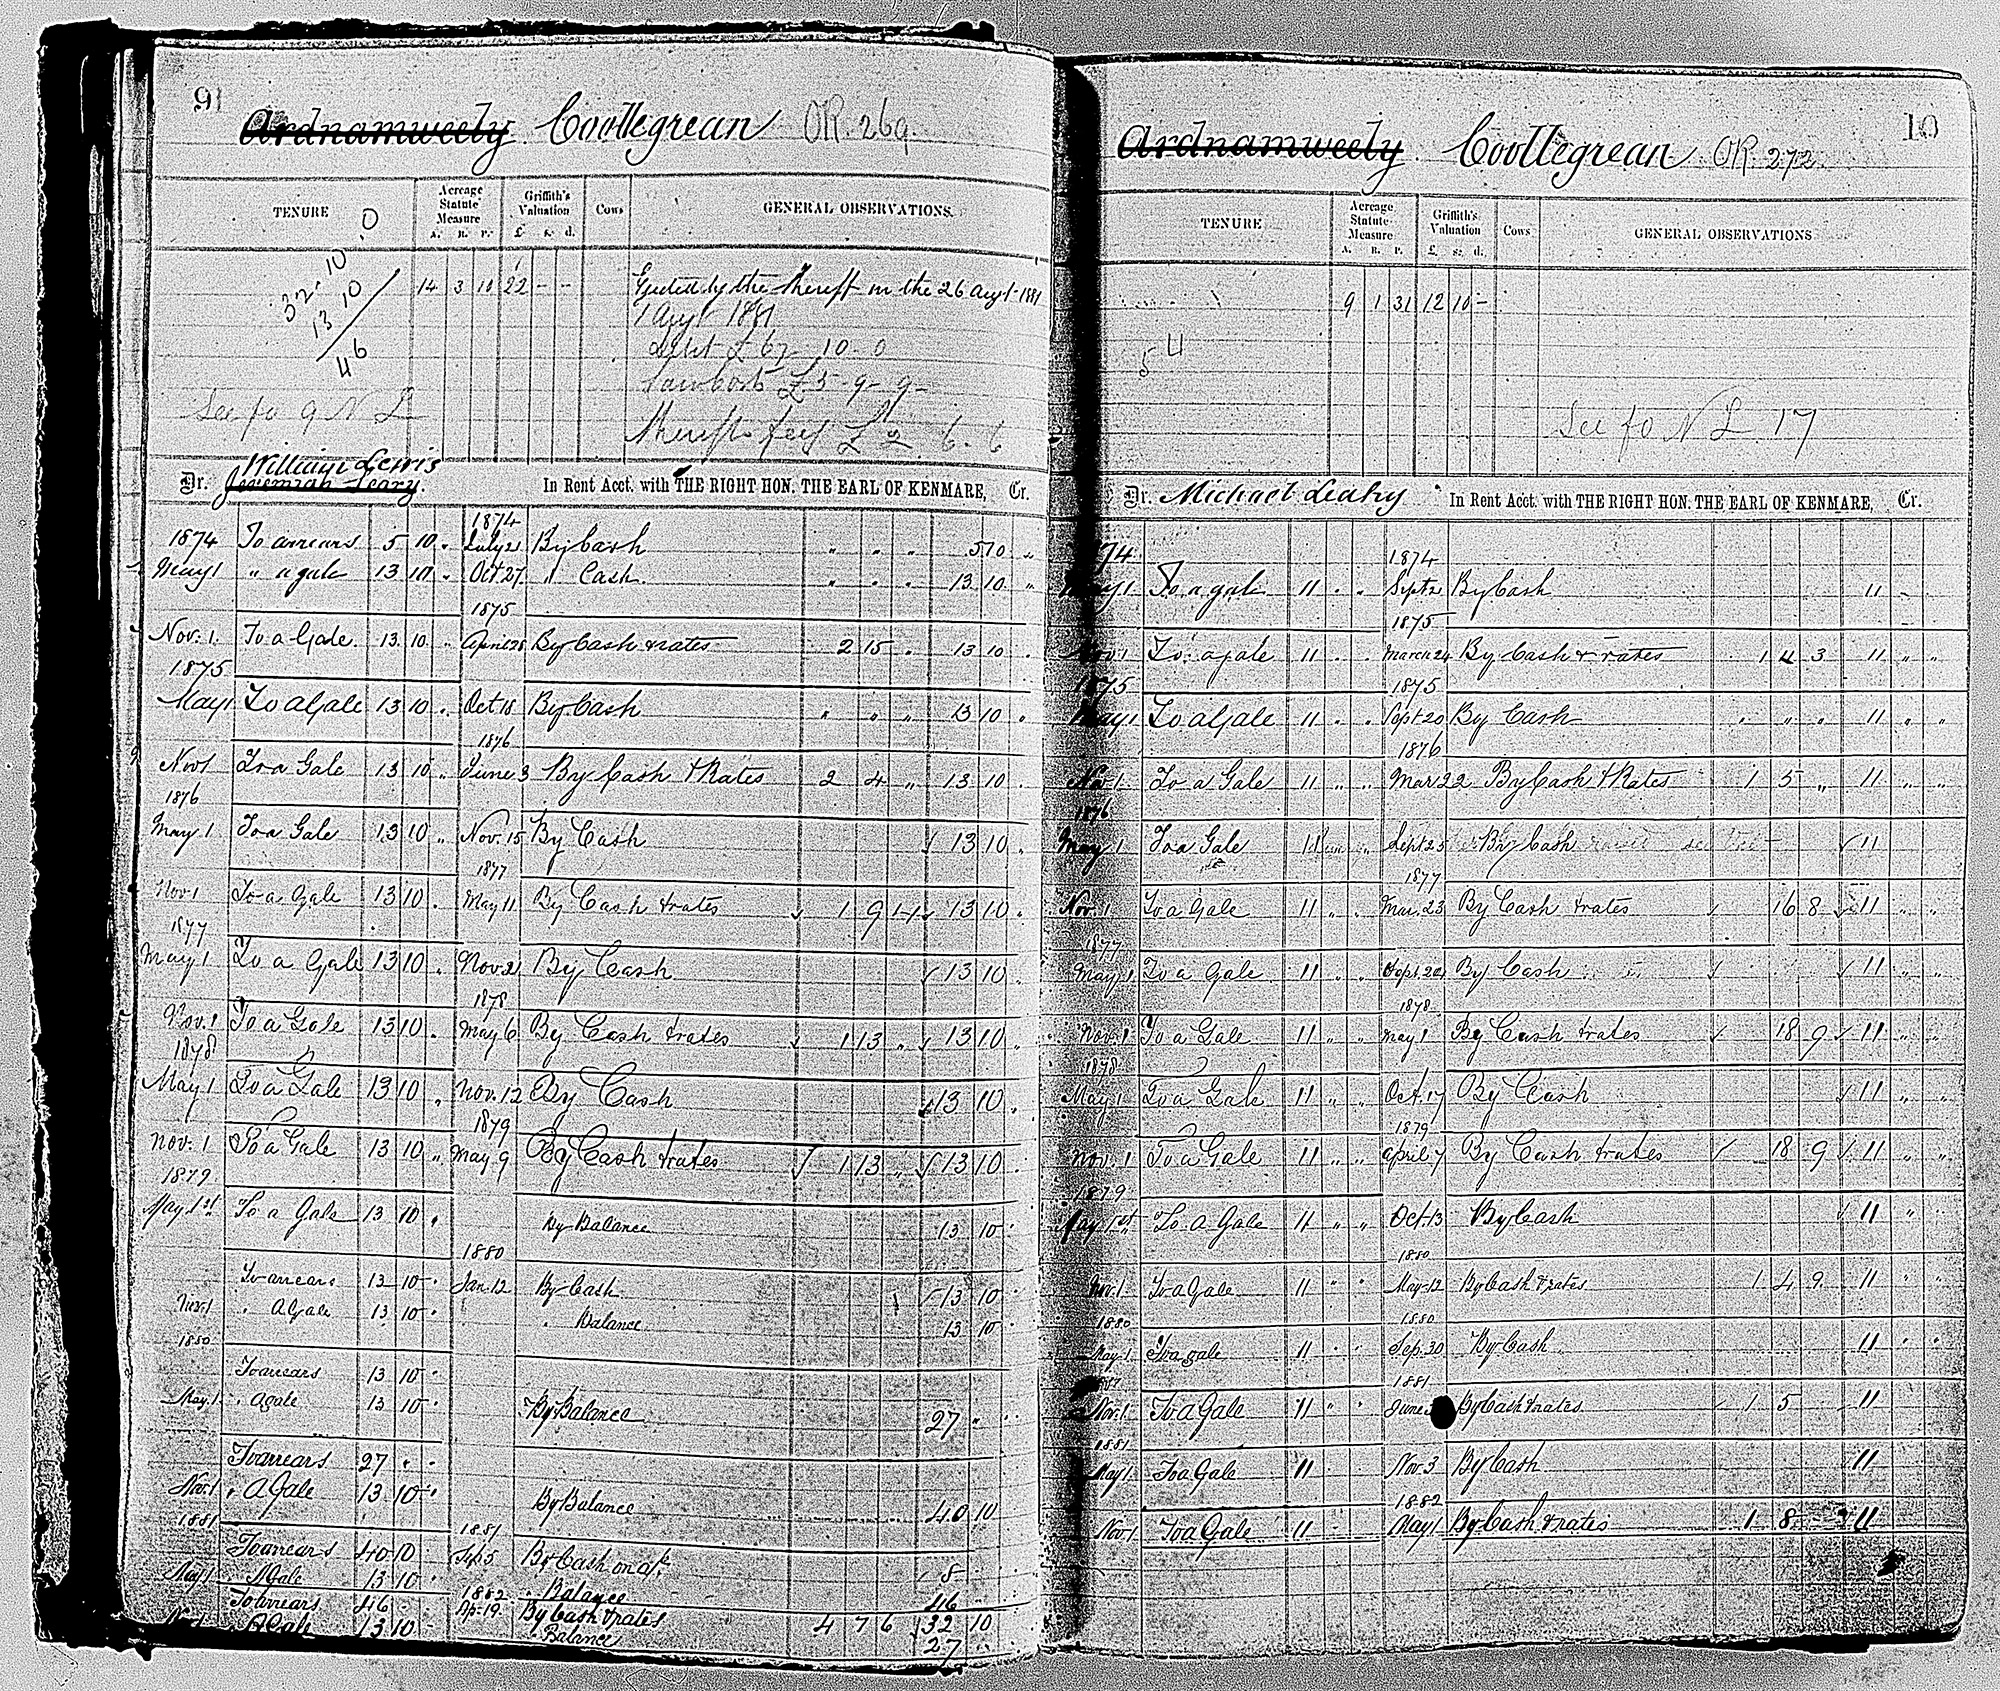 91
Ardnamweely. Coollegrean OR. 269.
TENURE Acreage Statute Measure A. R. P. Griffith's Valuation £ s. d. Cows GENERAL OBSERVATIONS.
0
32. 10
13 10
46
14 3 10 22 - - Ejected by the Sheriff on the 26 Augt 1881
1 Augt 1881
Debt £ 67 10-0
Law Costs £5-9-9-
Sheriffs fees £2 6-6
See fo 9 N L
William Lewis
Dr. Jeremiah Leary. In Rent Acct. with THE RIGHT HON. THE EARL OF KENMARE, Cr.
1874
1874 To arrears 5 10 " July 21 By Cash " " " 5 10 "
May 1 " a gale 13 10 " Oct 27 " Cash " " " 13 10 "
1875
Nov. 1. To a Gale. 13 10 " April 28 By Cash & rates 2 15 " 13 10 "
1875
May 1 To a Gale 13 10 " Oct 18 By Cash " " " 13 10 "
1876
Nov 1 To a Gale 13 10 " June 3 By Cash & Rates 2 4 " 13 10 "
1876
May 1 To a Gale 13 10 " Nov. 15 By Cash 13 10 "
1877
Nov 1 To a Gale 13 10 " May 11 By Cash & rates 1 9 13 10 "
1877
May 1 To a Gale 13 10 " Nov. 21 By Cash 13 10
1878
Nov. 1 To a Gale 13 10 " May 6 By Cash & rates 1 13 " 13 10 "
1878
May 1 To a Gale 13 10 " Nov. 12 By Cash 13 10 "
1879
Nov. 1 To a Gale 13 10 " May 9 By Cash & rates 1 13 " 13 10 "
1879
May 1st To a Gale 13 10 " By Balance 13 10 "
1880
To arrears 13 10 " Jan. 12 By Cash 13 10 "
Nov 1 " A Gale 13 10 " " Balance 13 10 "
1880
To arrears 13 10 "
May 1 " A gale 13 10 " By Balance 27 " "
To arrears 27 " "
Nov 1 " A Gale 13 10 " By Balance 40 10
1881 1881
To arrears 40 10 Sep 5 By Cash on a/c 8
May 1 A Gale 13 10 " " Balance 46
1882
To arrears 46 - Ap. 19 By Cash & rates 4 7 6 32 10
Nov 1 A Gale 13 10 - Balance 27 "
10
Ardnamweely. Coollegrean OR. 272.
TENURE Acreage Statute Measure A. R. P. Griffith's Valuation £. s. d. Cows GENERAL OBSERVATIONS
9 1 31 12 10 -
5 4
See fo N L 17
Dr. Michael Leahy In Rent Acct. with THE RIGHT HON. THE EARL OF KENMARE, Cr.
74 1874
May 1 To a gale 11 " " Sept 21 By Cash 11 -
1875
Nov 1 To a gale 11 " " March 24 By Cash & rates 1 4 3 11 " "
1875 1875
May 1 To a Gale 11 " " Sept 20 By Cash " " " 11 " "
1876
Nov 1. To a Gale 11 " " Mar 22 By Cash & Rates 1 5 " 11 " "
1876
May 1 To a Gale 11 " Sept 25 By Cash 11
1877
Nov. 1 To a Gale 11 " " Mar. 23 By Cash & rates 16 8 11 " "
1877
May 1 To a Gale 11 " " Sept. 20 By Cash 11 " "
1878
Nov. 1 To a Gale 11 " " May 1 By Cash & rates 18 9 11 " "
1878
May 1 To a Gale 11 " " Oct. 17 By Cash 11 " "
1879
Nov. 1 To a Gale 11 " " April 7 By Cash & rates 18 9 11 " "
1879
May 1st To a Gale 11 " " Oct. 13 By Cash 11 "
1880
Nov. 1 To a Gale 11 " " May 12 By Cash & rates 1 4 9 11 " "
1880 1880
May 1 To a gale 11 " " Sep. 30 By Cash 11 " "
1881
Nov. 1 To a Gale 11 " " June By Cash & rates 1 5 11
1881
May 1 To a Gale 11 Nov 3 By Cash 11
1882
Nov 1 To a Gale 11 - May 1 By Cash & rates 1 8 - 11